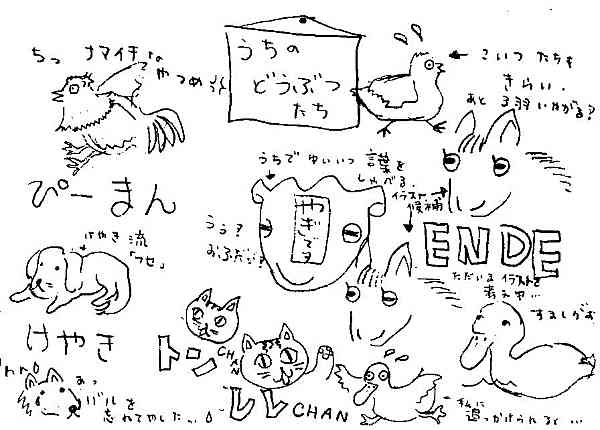 うちの
どうぶつ
たち
ちっ ナマイキな
やつめ
こいつ たちも
きらい.
あと3羽いやがる?
ぴーまん
うちで ゆいいつ 言葉を
しゃべる.
イラスト
候補
やぎです
うっ?
おふだ?
ENDE
ただいま イラストを
考え中…
けやき 流
「フセ」
けやき
トンCHAN
レレCHAN
するしがも
あっ
バルを
忘れてやした…
私に
追っかけられると…